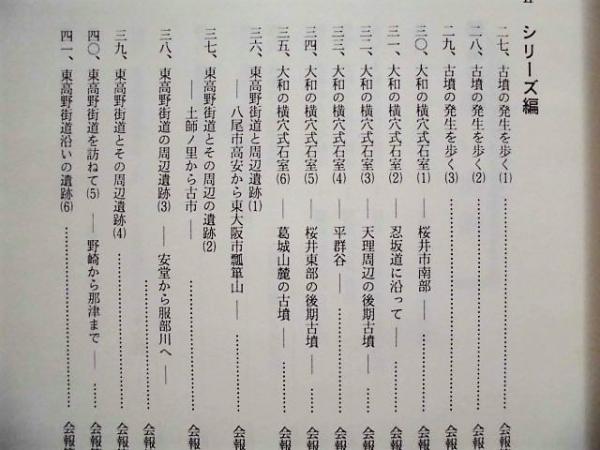 II シリーズ編
二七、古墳の発生を歩く(1) …… 会報
二八、古墳の発生を歩く(2) …… 会報
二九、古墳の発生を歩く(3) …… 会報
三〇、大和の横穴式石室(1) ―― 桜井市南部 ―― …… 会報
三一、大和の横穴式石室(2) ―― 忍坂道に沿って ―― …… 会報
三二、大和の横穴式石室(3) ―― 天理周辺の後期古墳 ―― …… 会報
三三、大和の横穴式石室(4) ―― 平群谷 ―― …… 会報
三四、大和の横穴式石室(5) ―― 桜井東部の後期古墳 ―― …… 会報
三五、大和の横穴式石室(6) ―― 葛城山麓の古墳 ―― …… 会報
三六、東高野街道と周辺遺跡(1)
―― 八尾市高安から東大阪市瓢箪山 ―― …… 会報
三七、東高野街道とその周辺の遺跡(2)
―― 土師ノ里から古市 ―― …… 会報
三八、東高野街道の周辺遺跡(3) ―― 安堂から服部川へ ――
…… 会報
三九、東高野街道とその周辺遺跡(4) …… 会報
四〇、東高野街道を訪ねて(5) ―― 野崎から那津まで ―― …… 会報
四一、東高野街道沿いの遺跡(6) …… 会報